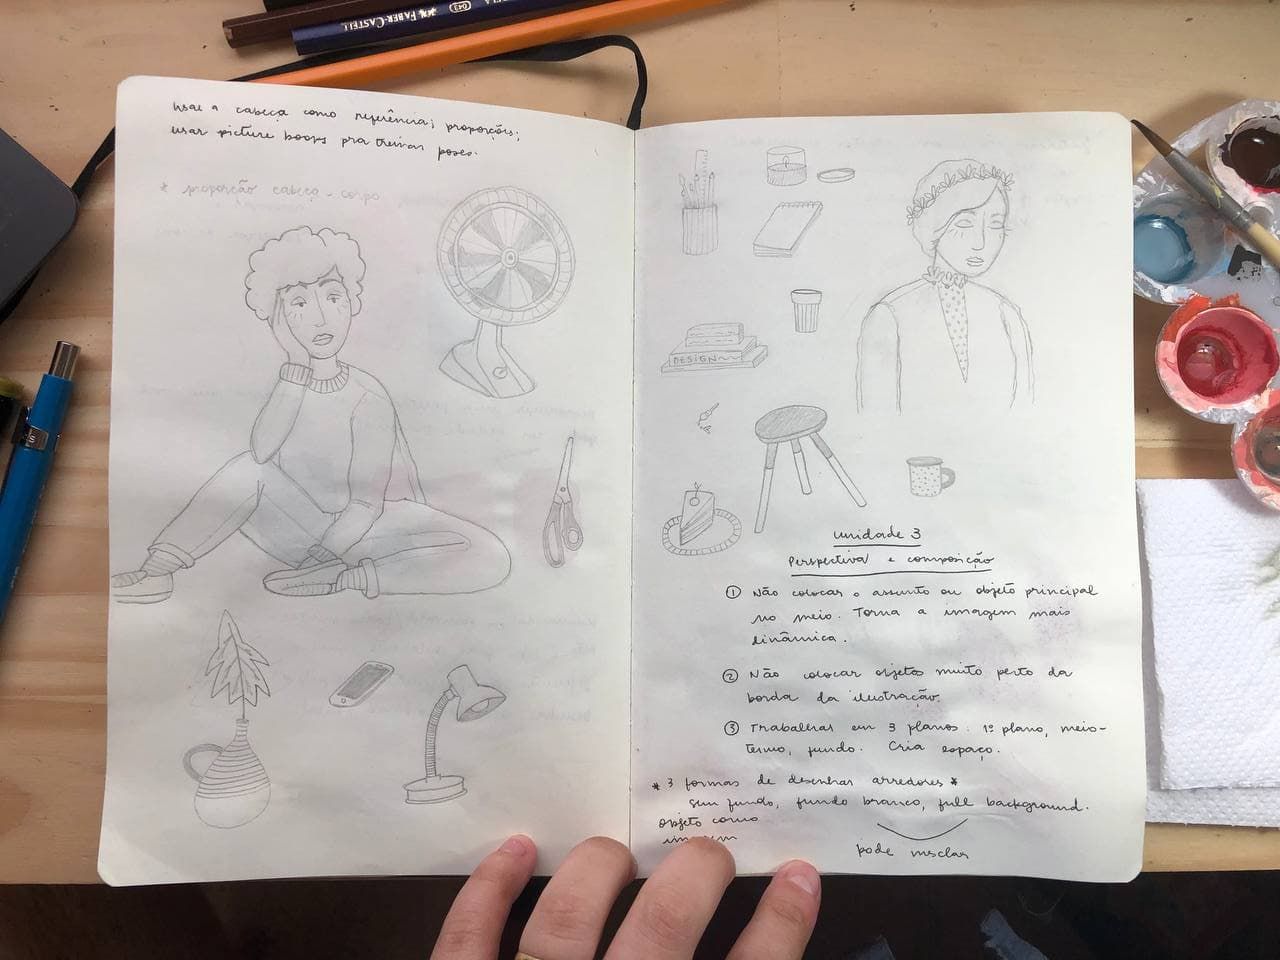 FABER-CASTELL
usar a cabeça como referência; proporções;
usar picture books pra treinar poses.
* proporção cabeça - corpo
DESIGN
Unidade 3
Perspectiva e composição
① Não colocar o assunto ou objeto principal
no meio. Torna a imagem mais
dinâmica.
② Não colocar objetos muito perto da
borda da ilustração.
③ Trabalhar em 3 planos: 1º plano, meio-
termo, fundo. Cria espaço.
* 3 formas de desenhar arredores *
sem fundo, fundo branco, full background.
objeto como
pode mesclar